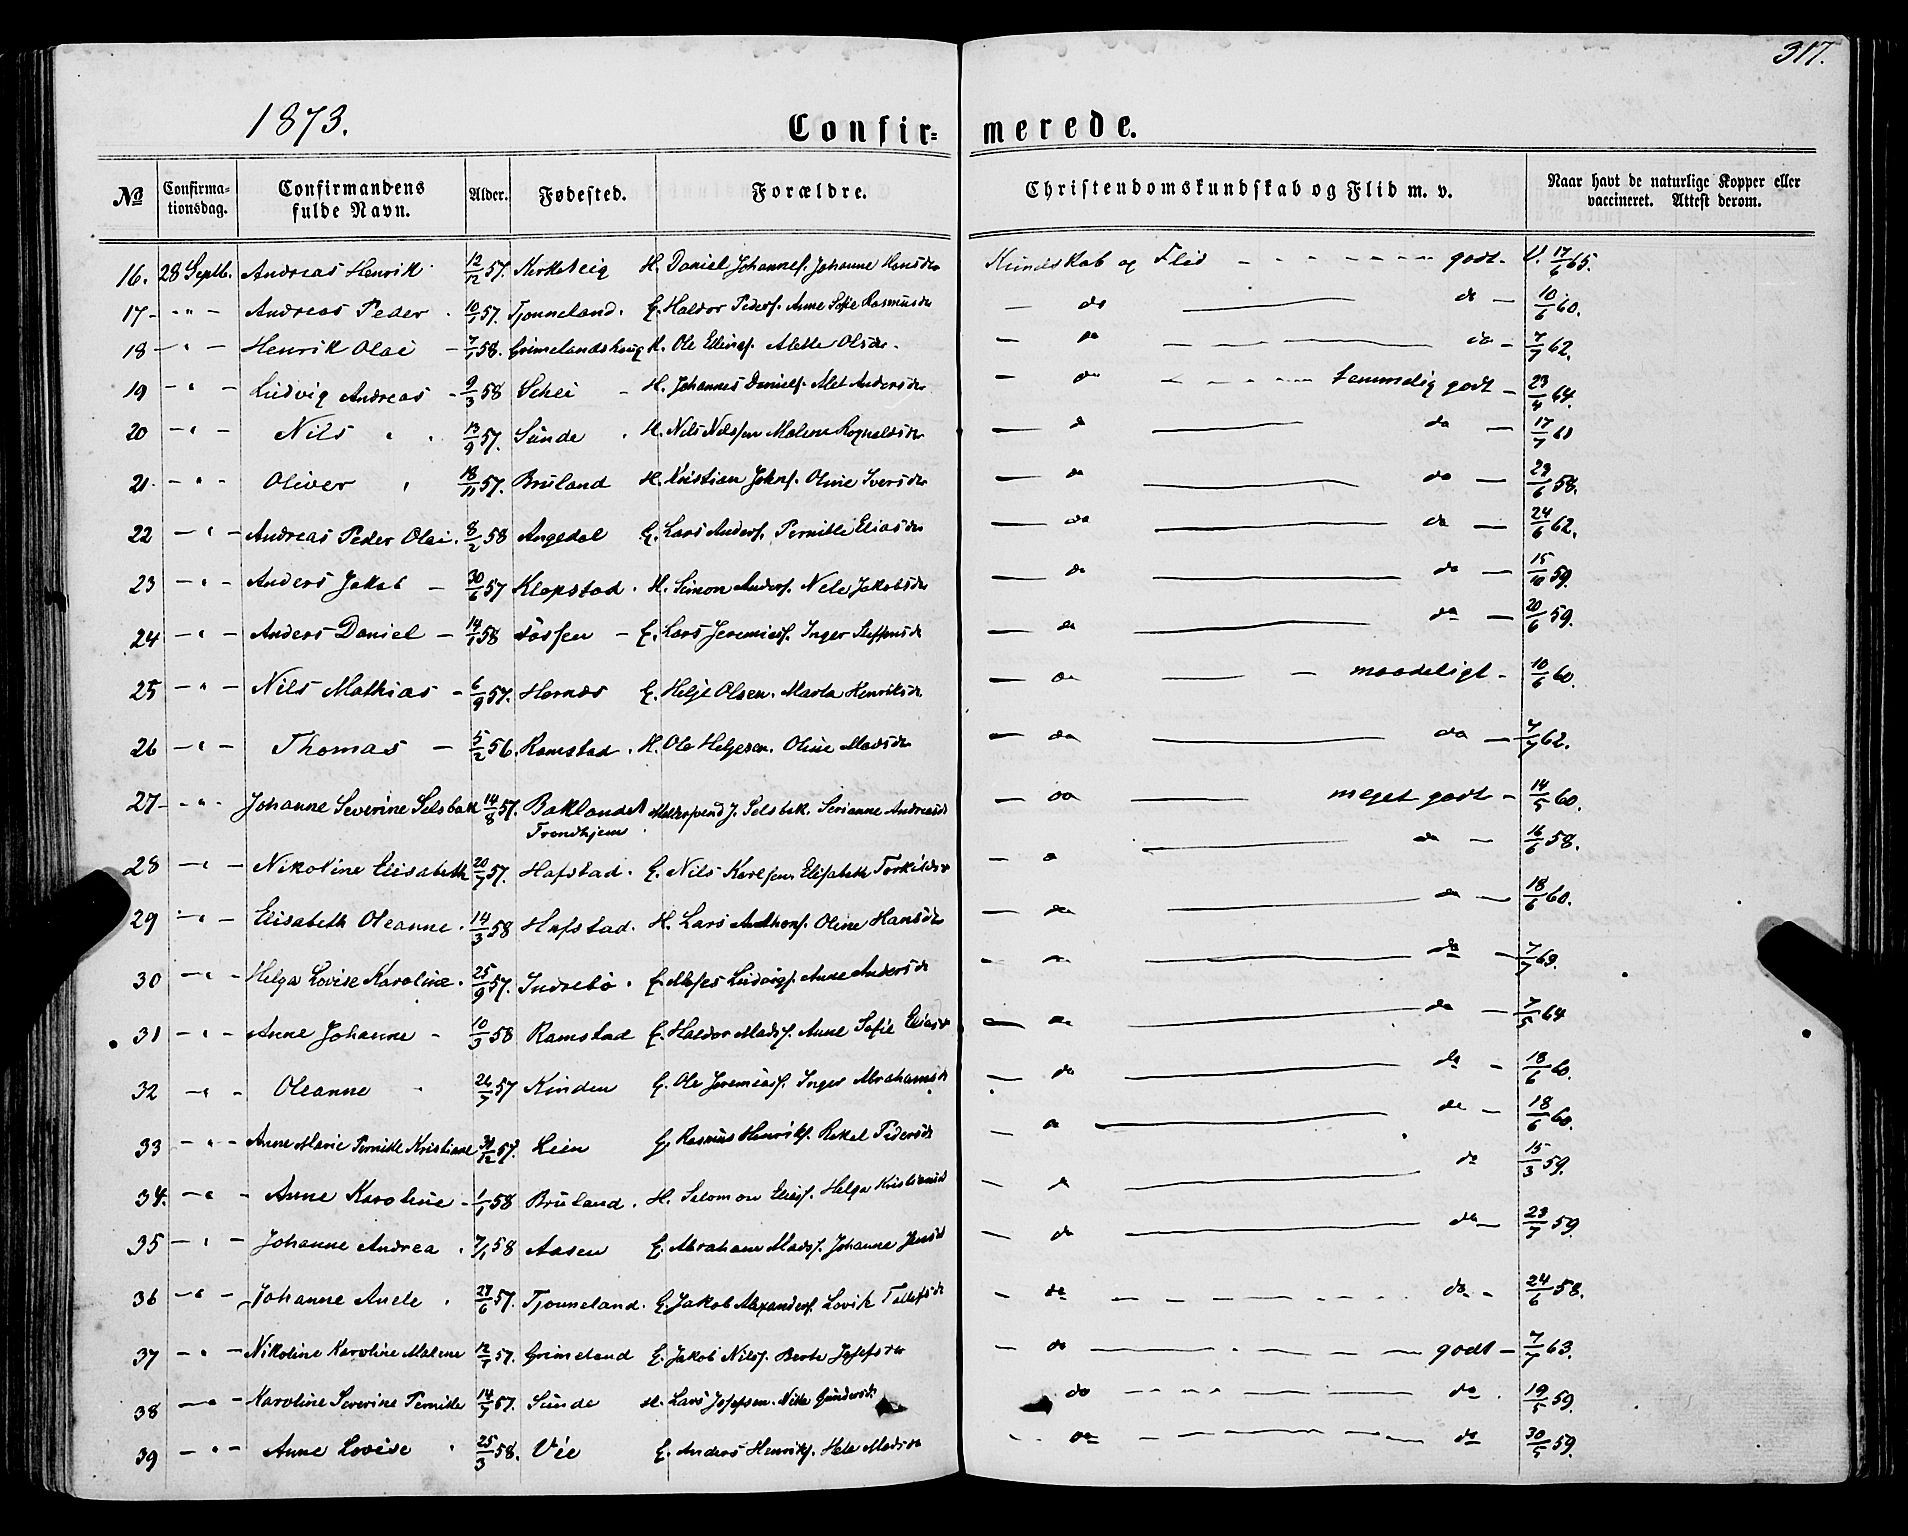 317.
1873.
Confir= merede.
No Confirma- tionsdag. Confirmandens fulde Navn. Alder. Fødested. Forældre. Christendomskundskab og Flid m. v. Naar havt de naturlige Kopper eller vaccineret. Attest derom.
16. 28 Septb. Andreas Henrik 12/12 57. Kirketeig H. Daniel Johannesf. Johanne Hansdr Kundskab og Flid - - - - - - godt. V. 17/6 65.
17 - " - Andreas Peder 10/1 57. Tjønneland. G. Haldor Pedersf. Anne Sofie Rasmusdr — do — do — 10/6 60.
18 - " - Henrik Olai - 7/1 58. Grimelandshaug H. Ole Ellingf. Alette Olsdr. — do — do — 7/7 62.
19 - " - Ludvig Andreas - 9/3 58 Schei - H. Johannes Danielsf. Alet Andersdr — do - - - - temmelig godt - 23/4 64.
20 - " - Nils " 13/9 57. Sunde H. Nils Nilssen Malene Rognaldsdr — do — do — 17/7 60
21 - " - Oliver 18/11 57. Bruland H. Kristian Johnsf. Oline Iversdr — do — do — 29/6 58.
22 - " - Andreas Peder Olai. 8/2 58 Angedal G. Lars Andersf. Pernille Eliasdr — do — do — 24/6 62.
23 - " - Anders Jakob - 30/6 57 Klopstad. H. Simon Andersf. Nele Jakobsdr — do — do — 15/10 59.
24 - " - Anders Daniel - 14/1 58 Fossen - G. Lars Jeremiasf. Inger Steffensdr — do — do — 20/6 59.
25 - " - Nils Mathias - 6/9 57. Hornæs G. Helje Olsen. Marta Henriksdr — do — maadeligt - 10/6 60.
26 - " - Thomas - 5/2 56. Ramstad. H. Ole Helgesen. Oline Madsdr — do — do — 7/7 62.
27 - " - Johanne Severine Selsbak 14/8 57. Baklandet J. Selsbak. Serianne Andreasdr — do — meget godt - 14/5 60.
Trondhjem
28 - " - Nikoline Elisabeth 20/7 57. Hafstad. G. Nils Karlsen Elisabeth Torkildsdr — do — do — 16/6 58.
29 - " - Elisabeth Oleanne. 14/3 58 Hafstad. H. Lars Anthonf. Oline Hansdr — do — do — 18/6 60.
30 - " - Helga Lovise Karoline. 25/9 57. Indrebø. G. Moses Ludvigf. Anne Andersdr — do — do — 7/7 69.
31 - " - Anne Johanne - 10/3 58 Ramstad G. Haldor Madsf. Anne Sofie Eliasdr — do — do — 7/5 64
32 - " - Oleanne 26/7 57 Kinden G. Ole Jeremiasf. Inger Abrahamsdr — do — do - 18/6 60.
33 - " - Anne Marie Pernille Kristiane 31/12 57. Lein G. Rasmus Henriksf. Rakel Pedersdr — do — do - 18/6 60.
34. - " - Anne Karoline - 1/1 58 Bruland. H. Salomon Eliasf. Helga Kristiansdr — do — do 15/3 59.
35 - " - Johanne Andrea 7/1 58 Aasen G. Abraham Madsf. Johanne Jensdr — do — do — 23/7 59.
36 - " - Johanne Anele 29/6 57. Tjønneland. G. Jakob Alexandersf. Lovise Tollefsdr — do — do - 24/6 58.
37 - " - Nikoline Karoline Malene 12/7 57. Grimeland G. Jakob Nilsf. Berte Josefsdr — do — godt - 7/7 63.
38 - " - Karoline Severine Pernille 14/7 57. Sunde H. Lars Josefsen. Gundersdr — do — do. 19/5 59.
39 - " - Anne Lovise 25/3 58. Vie G. Anders Henriksf. Madsdr — do — do 30/5 59.